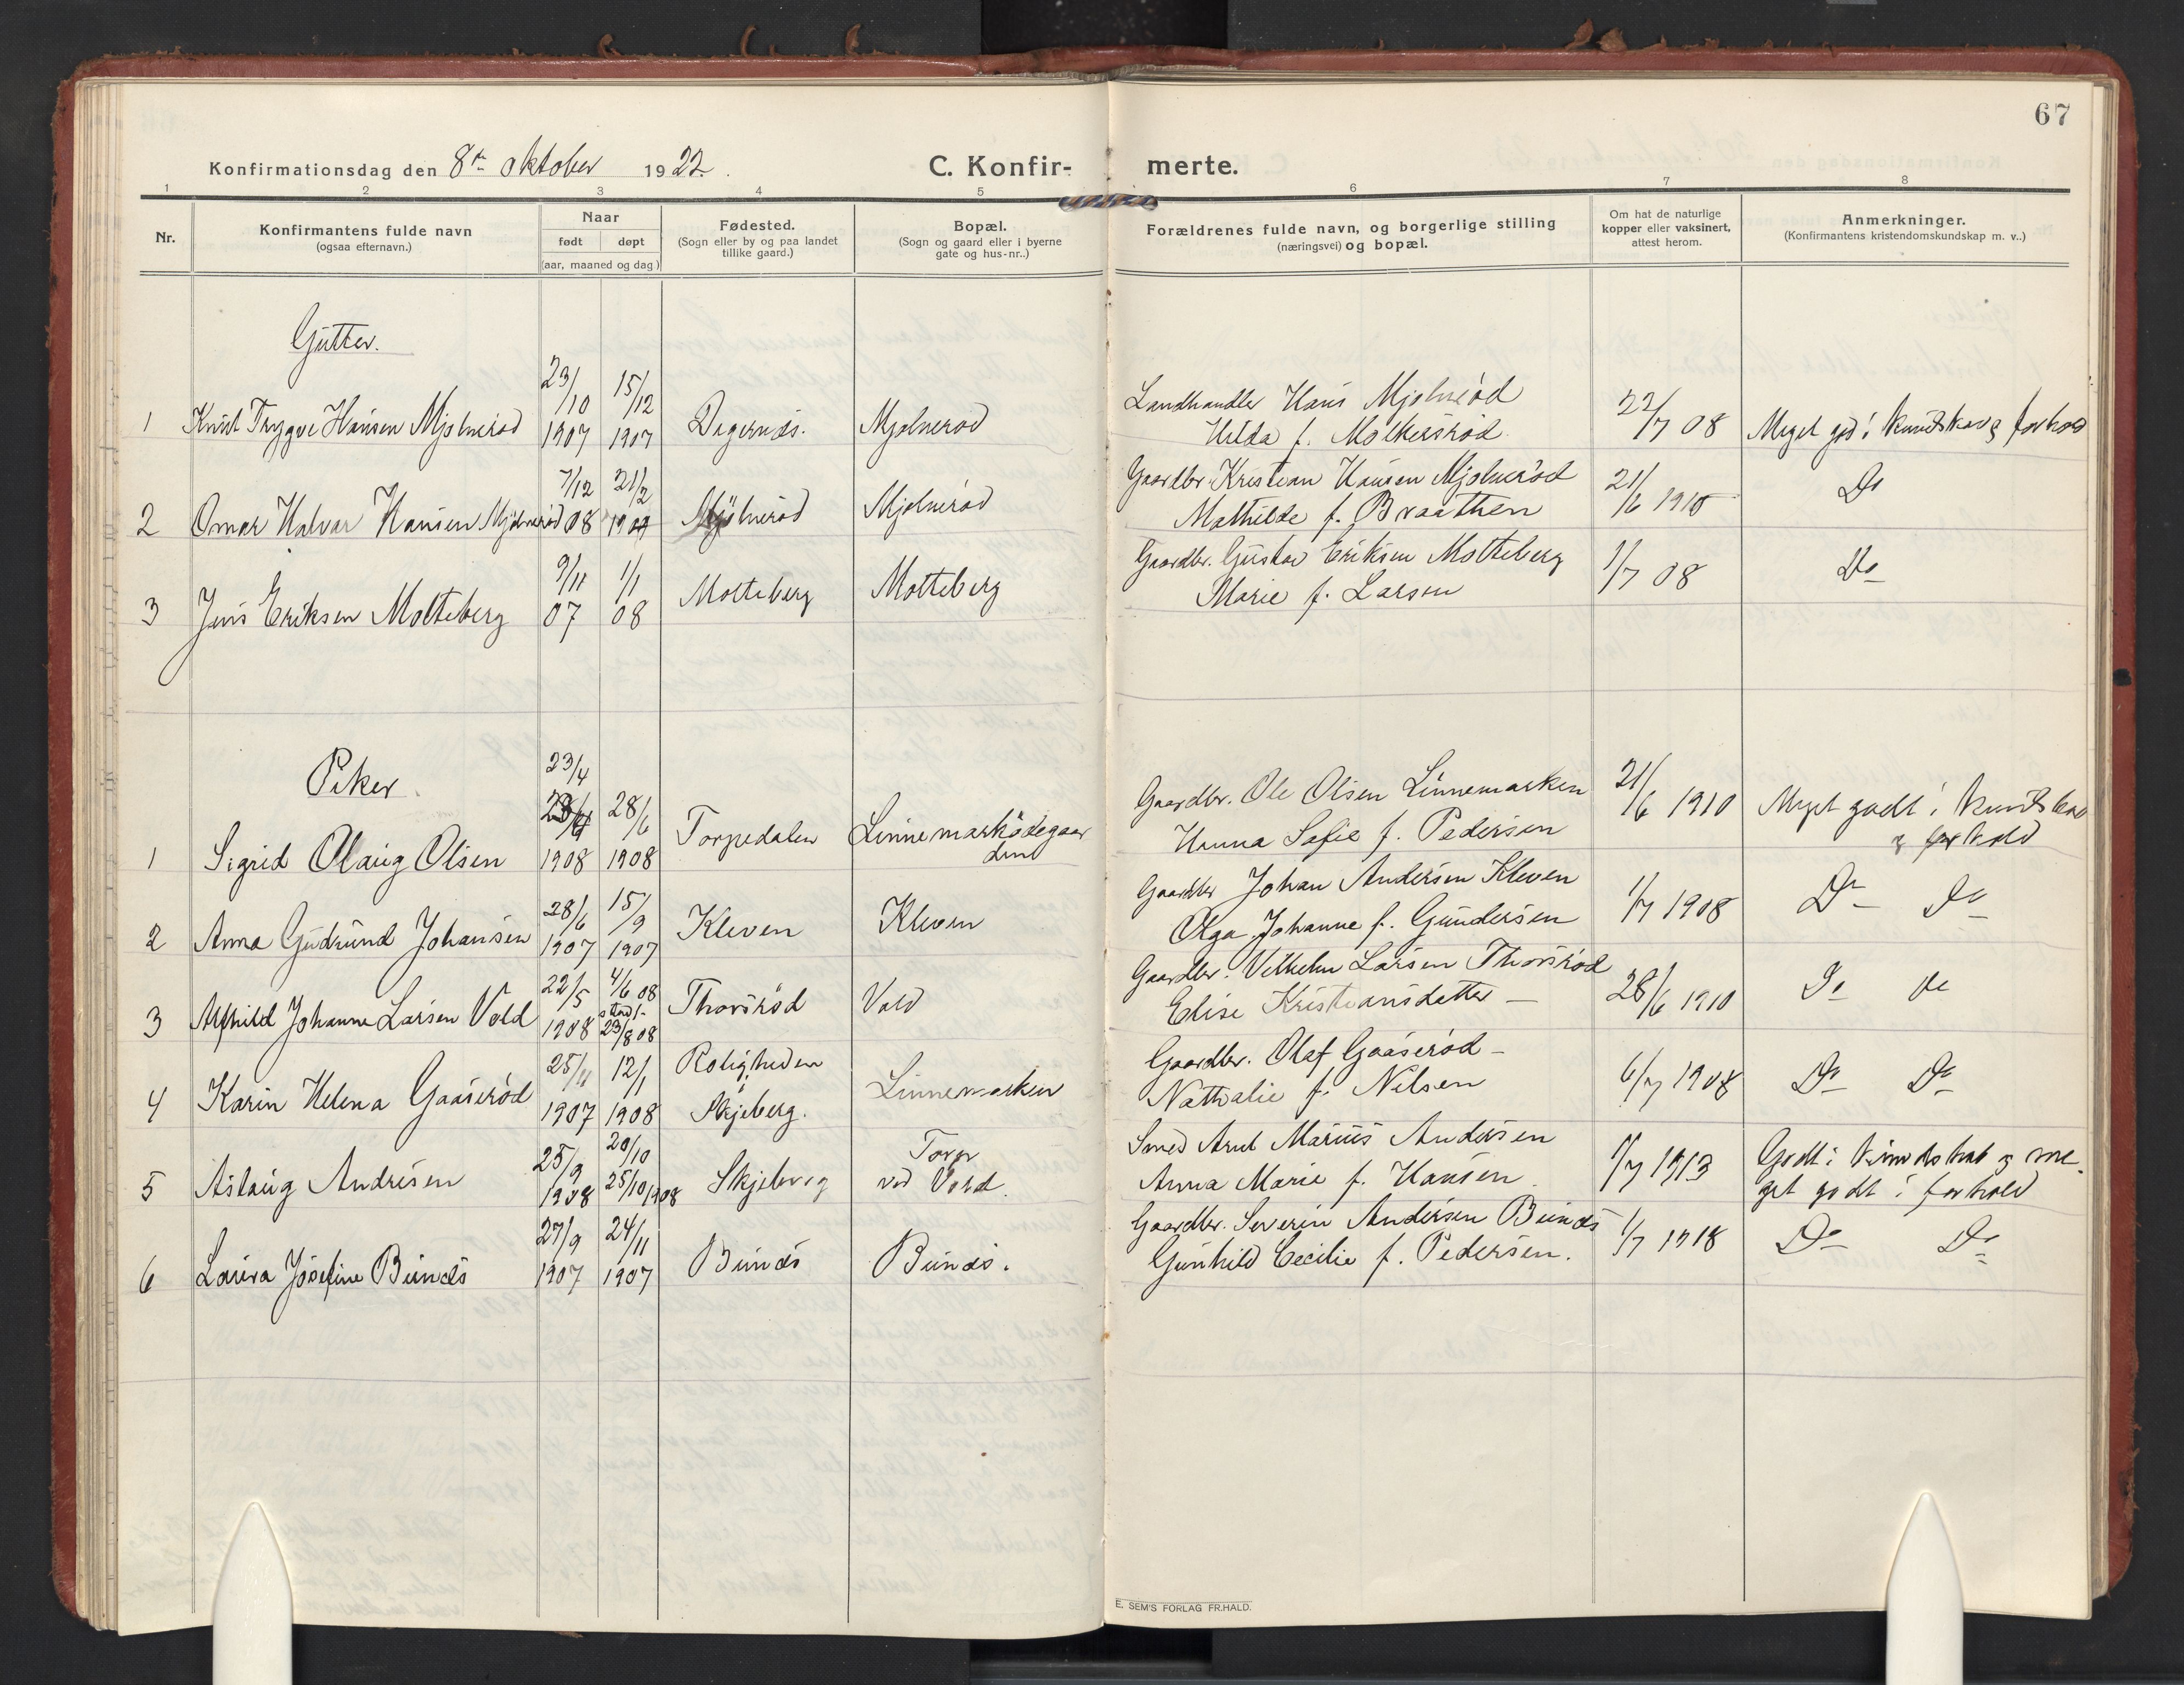 67
Konfirmationsdag den 8de oktober 1922.
C. Konfir- merte.
1 2 3 4 5 6 7 8
Nr.
Konfirmantens fulde navn
(ogsaa efternavn.)
Naar
født døpt
(aar, maaned og dag)
Fødested.
(Sogn eller by og paa landet
tillike gaard.)
Bopæl.
(Sogn og gaard eller i byerne
gate og hus-nr..)
Forældrenes fulde navn, og borgerlige stilling
(næringsvei) og bopæl.
Om hat de naturlige
kopper eller vaksinert,
attest herom.
Anmerkninger.
(Konfirmantens kristendomskundskap m. v..)
Gutter.
1 Knut Trygve Hansen Mjølnerød 23/10 1907 15/12 1907 Degernes. Mjølnerød Landhandler Hans Mjølnerød 22/7 08 Meget god i kundskap og forhold
Hilda f. Molkersrød
2 Omar Halvar Hansen Mjølnerød 7/12 08 21/2 1909 Mjølnerød Mjølnerød Gaardbr. Kristian Hansen Mjølnerød 21/6 1910 Do
Mathilde f. Braathen
3 Jens Eriksen Molteberg 9/11 07 1/1 08 Molteberg Molteberg Gaardbr. Gustav Eriksen Molteberg 1/7 08 Do
Marie f. Larsen
Piker
23/4
1 Sigrid Olaug Olsen 1908 28/6 1908 Torpedalen Linnemarkødegaar Gaardbr. Ole Olsen Linnemarken 21/6 1910 Meget godt i kundskap
den Hanna Sofie f. Pedersen og forhold
2 Anna Gudrund Johansen 28/6 1907 15/9 1907 Kleven Kleven Gaardbr Johan Andersen Kleven 1/7 1908 Do Do
Olga Johanne f. Gundersen
3 Alfhild Johanne Larsen Vold 22/5 1908 4/6 08 stadf. 23/8 08 Thorsrød Vold Gaardbr. Vilhelm Larsen Thorsrød 28/6 1910 Do do
Elise Kristiansdatter
4 Karin Helena Gaaserød 25/11 1907 12/1 1908 Roligheden Linnemarken Gaardbr. Olaf Gaaserød 6/7 1908 Do Do
Skjeberg. Nathalie f. Nilsen
5 Aslaug Andresen 25/9 1908 20/10 25/10 1908 Skjeberg Torp Smed Arnt Marius Andersen 1/7 1913 Godt i kundskab og me-
ved Vold Anna Marie f. Hansen get godt i forhold
6 Laura Josefine Bunæs 27/9 1907 24/11 1907 Bunæs Bunæs. Gaardbr. Severin Andersen Bunæs 1/7 1918 Do Do
Gunhild Cecilie f. Pedersen.
E. SEM'S FORLAG FR.HALD.